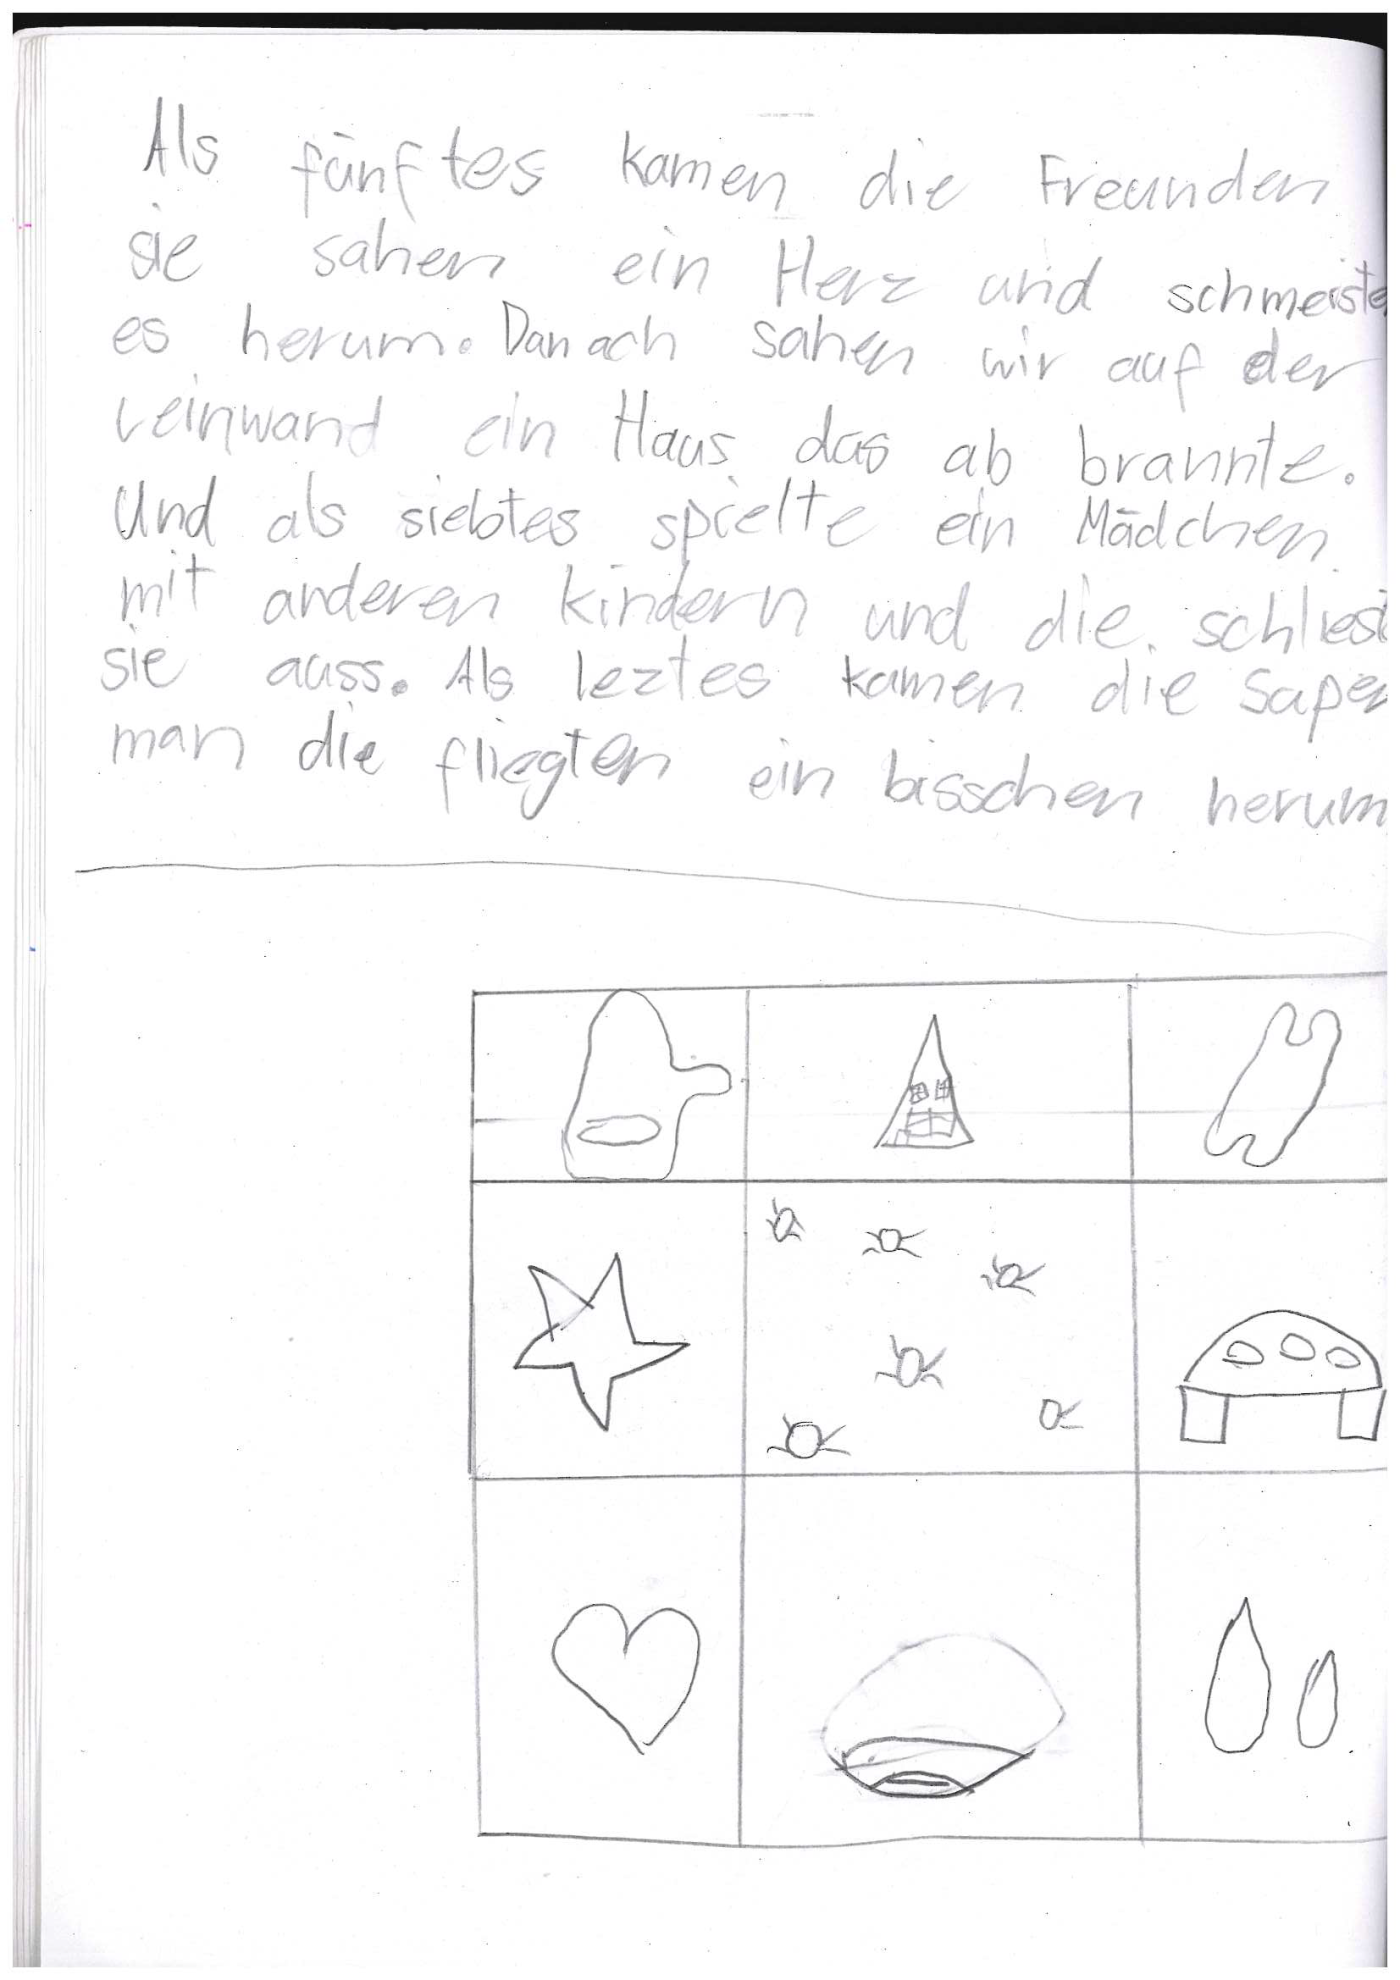 Als fünftes kamen die Freunden
sie sahen ein Herz und schmeiste
es herum. Danach sahen wir auf der
leinwand ein Haus das ab brannte.
Und als siebtes spielte ein Mädchen
mit anderen kindern und die schliest
sie auss. Als leztes kamen die Super
man die fliegten ein bisschen herum